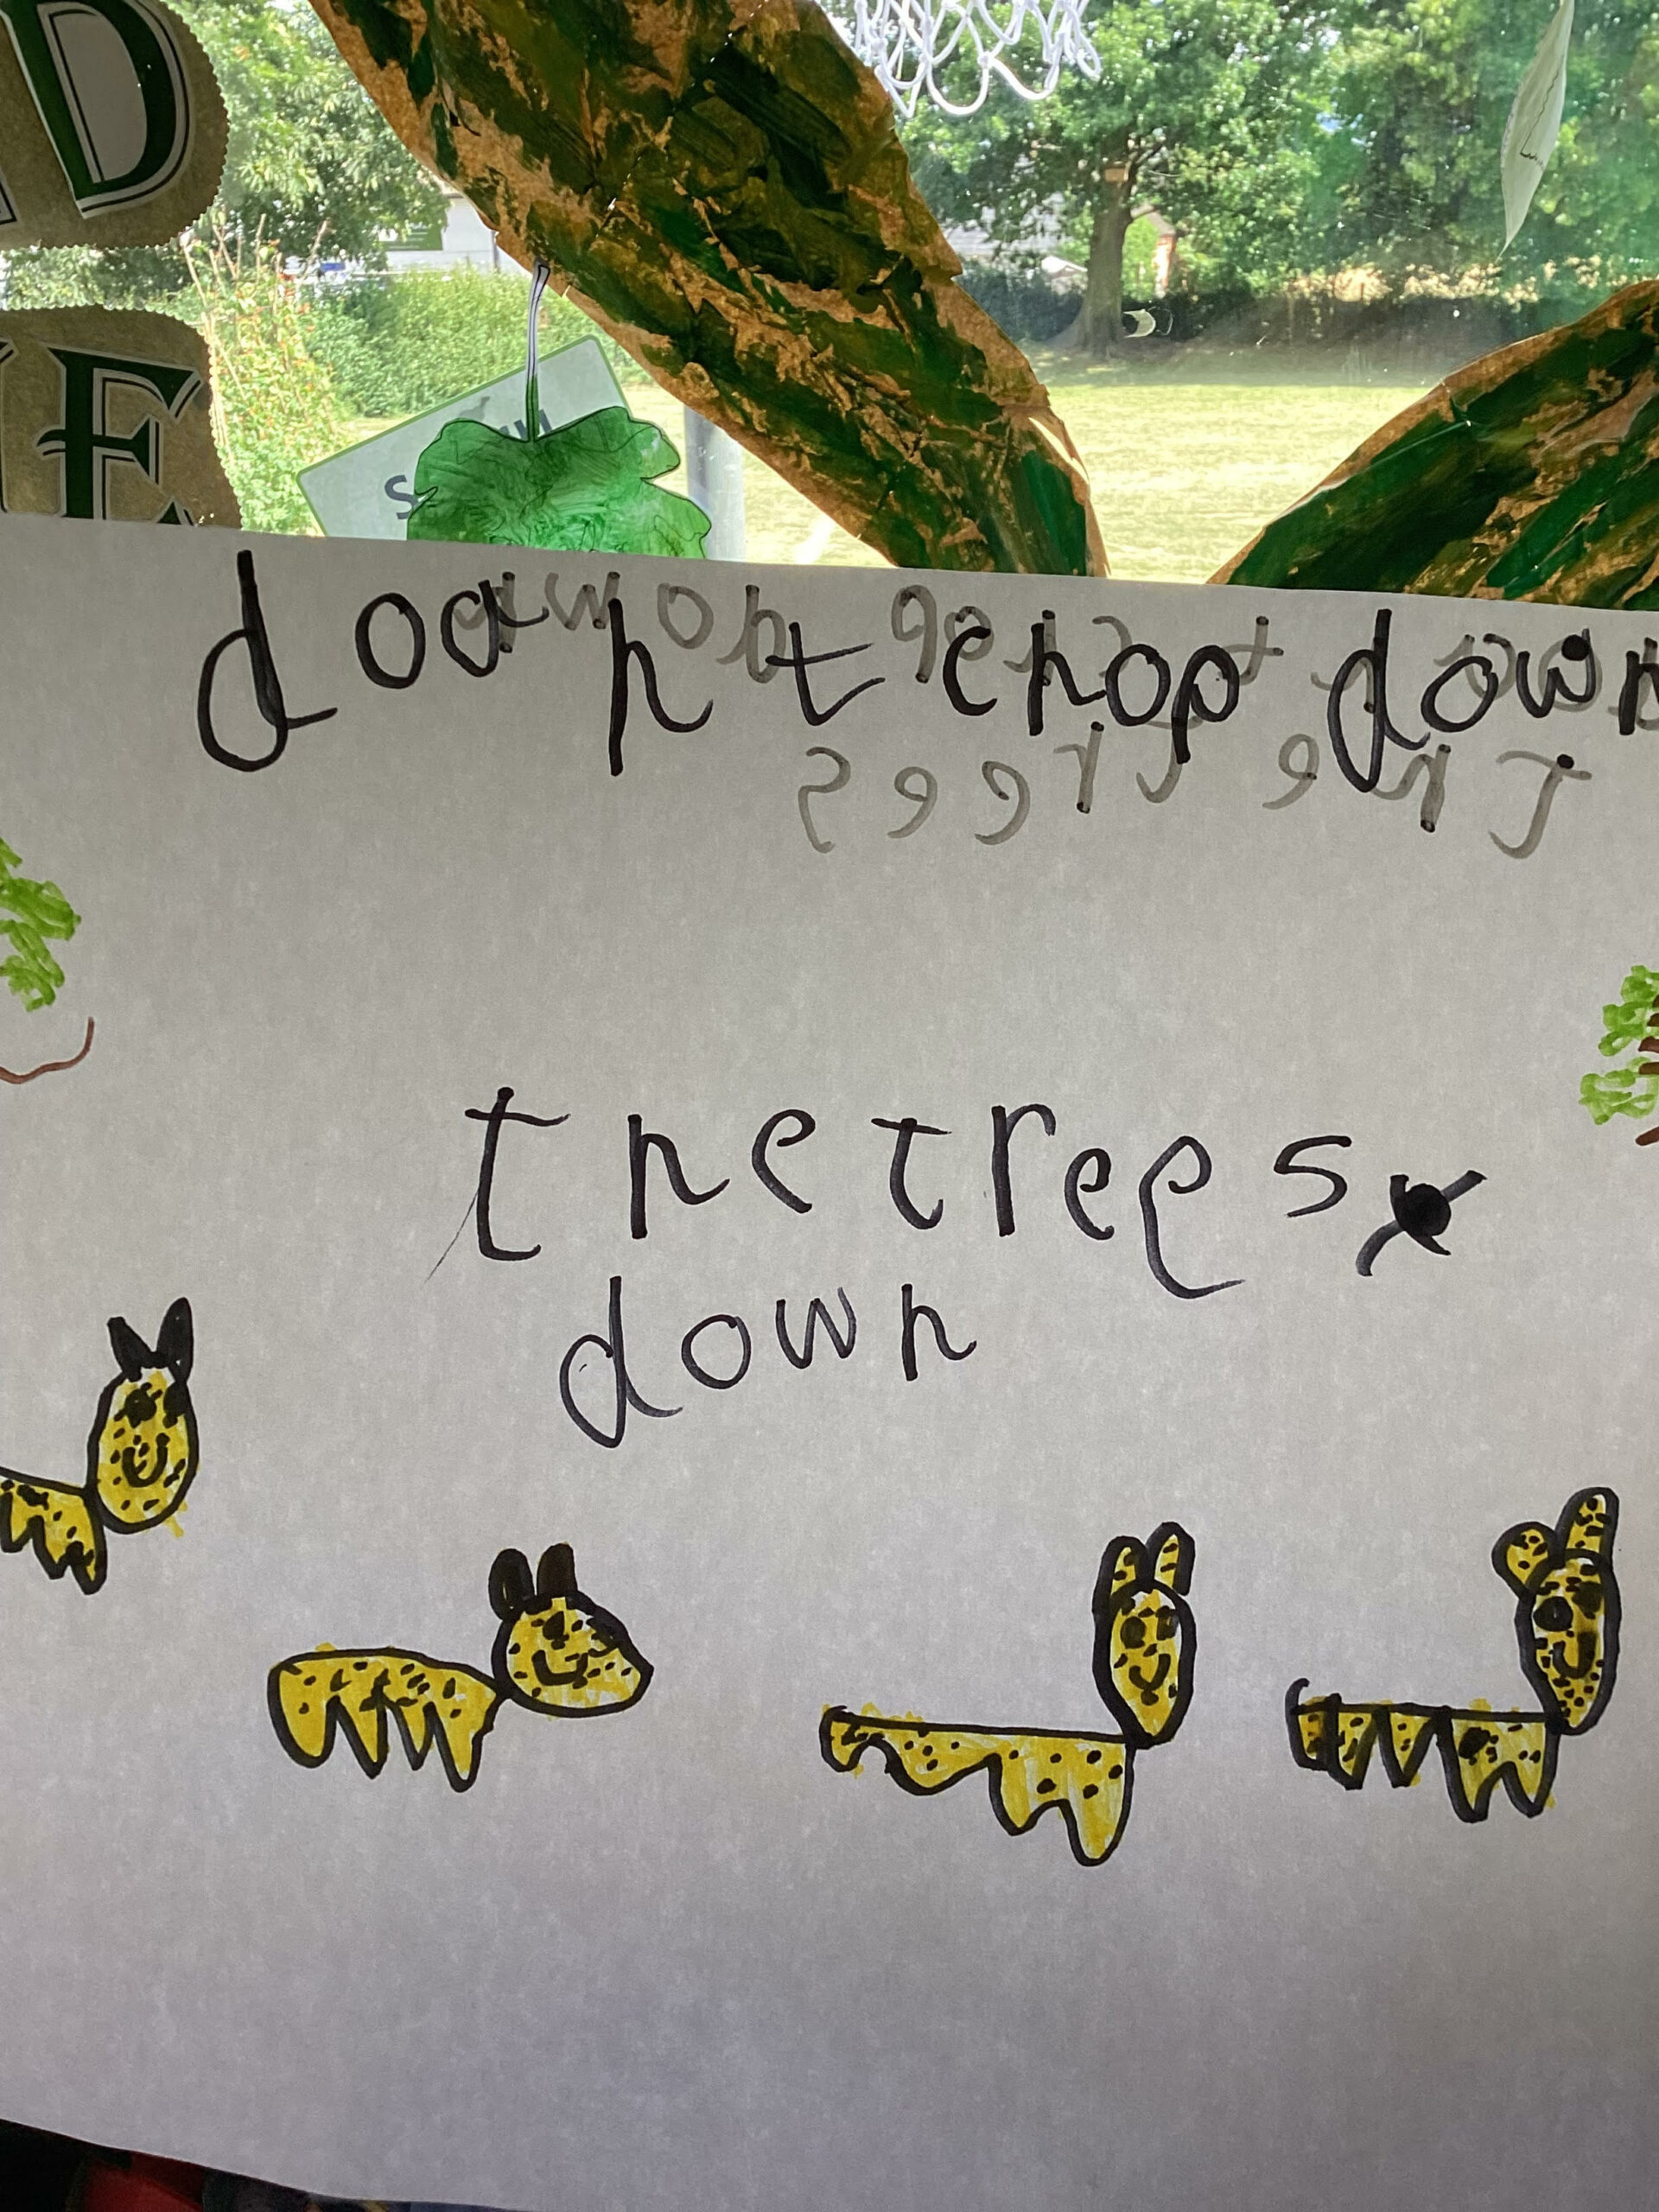 doant chop down
the trees
down